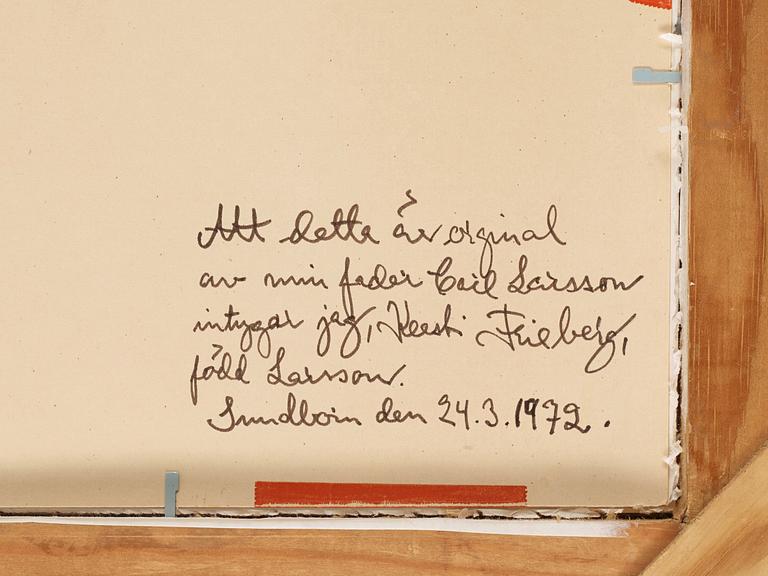 Att detta är orginal
av min fader Carl Larsson
intygar jag, Kersti Frieberg,
född Larsson.
Sundborn den 24.3.1972.